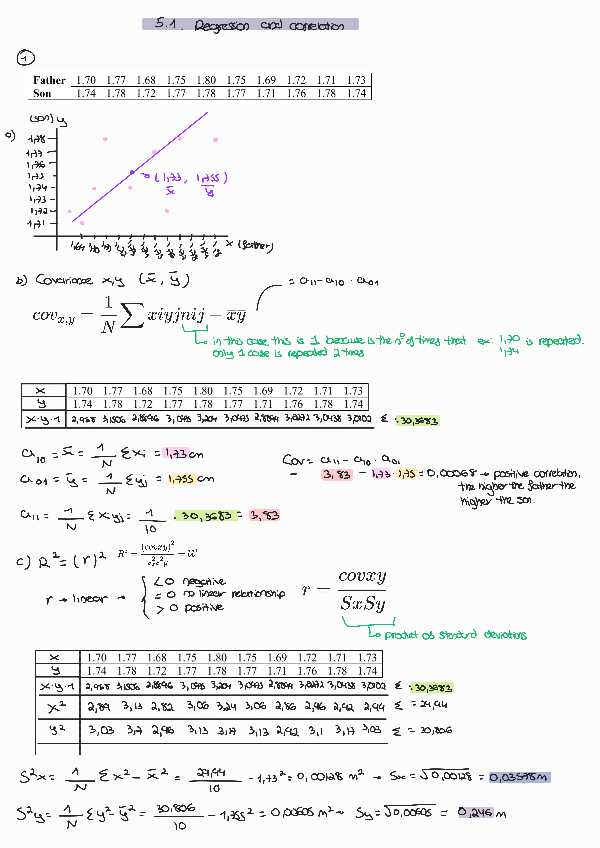 5.1. Regression and correlation
1
Father 1.70 1.77 1.68 1.75 1.80 1.75 1.69 1.72 1.71 1.73
Son 1.74 1.78 1.72 1.77 1.78 1.77 1.71 1.76 1.78 1.74
a)
(son) y
1,78
1,77
1,76
1,75
1,74
1,73
1,72
1,71
(1,73, 1,755)
x̄ ȳ
x (father)
b) Covariance x,y (x̄, ȳ)
= a11 - a10 · a01
cov x,y = 1/N ∑ xiyjnij − x̄ȳ
in this case this is 1 because is the nº of times that ex: 1,70 is repeated.
only 1 case is repeated 2 times 1,74
x 1.70 1.77 1.68 1.75 1.80 1.75 1.69 1.72 1.71 1.73
y 1.74 1.78 1.72 1.77 1.78 1.77 1.71 1.76 1.78 1.74
x·y·1 2,958 3,1506 2,8896 3,0975 3,204 3,0975 2,8899 3,0272 3,0438 3,0102 Σ: 30,3683
a10 = x̄ = 1/N Σ xi = 1,73 cm
a01 = ȳ = 1/N Σ yj = 1,755 cm
a11 = 1/N Σ xi yj = 1/10 · 30,3683 = 3,83
Cov = a11 - a10 · a01
= 3,83 - 1,73 · 1,75 = 0,00068 → positive correlation,
the higher the father the
higher the son.
c) R² = (r)²
r → linear →
< 0 negative
= 0 no linear relationship
> 0 positive
r = covxy / SxSy
product of standard deviations
x 1.70 1.77 1.68 1.75 1.80 1.75 1.69 1.72 1.71 1.73
y 1.74 1.78 1.72 1.77 1.78 1.77 1.71 1.76 1.78 1.74
x·y·1 2,958 3,1506 2,8896 3,0975 3,204 3,0975 2,8899 3,0272 3,0438 3,0102 Σ: 30,3683
x² 2,89 3,13 2,82 3,06 3,24 3,06 2,86 2,96 2,92 2,99 Σ = 29,94
y² 3,03 3,17 2,96 3,13 3,17 3,13 2,92 3,1 3,17 3,03 Σ = 30,806
S²x = 1/N Σ x² - x̄² = 29,94/10 - 1,73² = 0,00128 m² → Sx = √0,00128 = 0,03578 m
S²y = 1/N Σ y² - ȳ² = 30,806/10 - 1,755² = 0,00605 m² → Sy = √0,00605 = 0,246 m